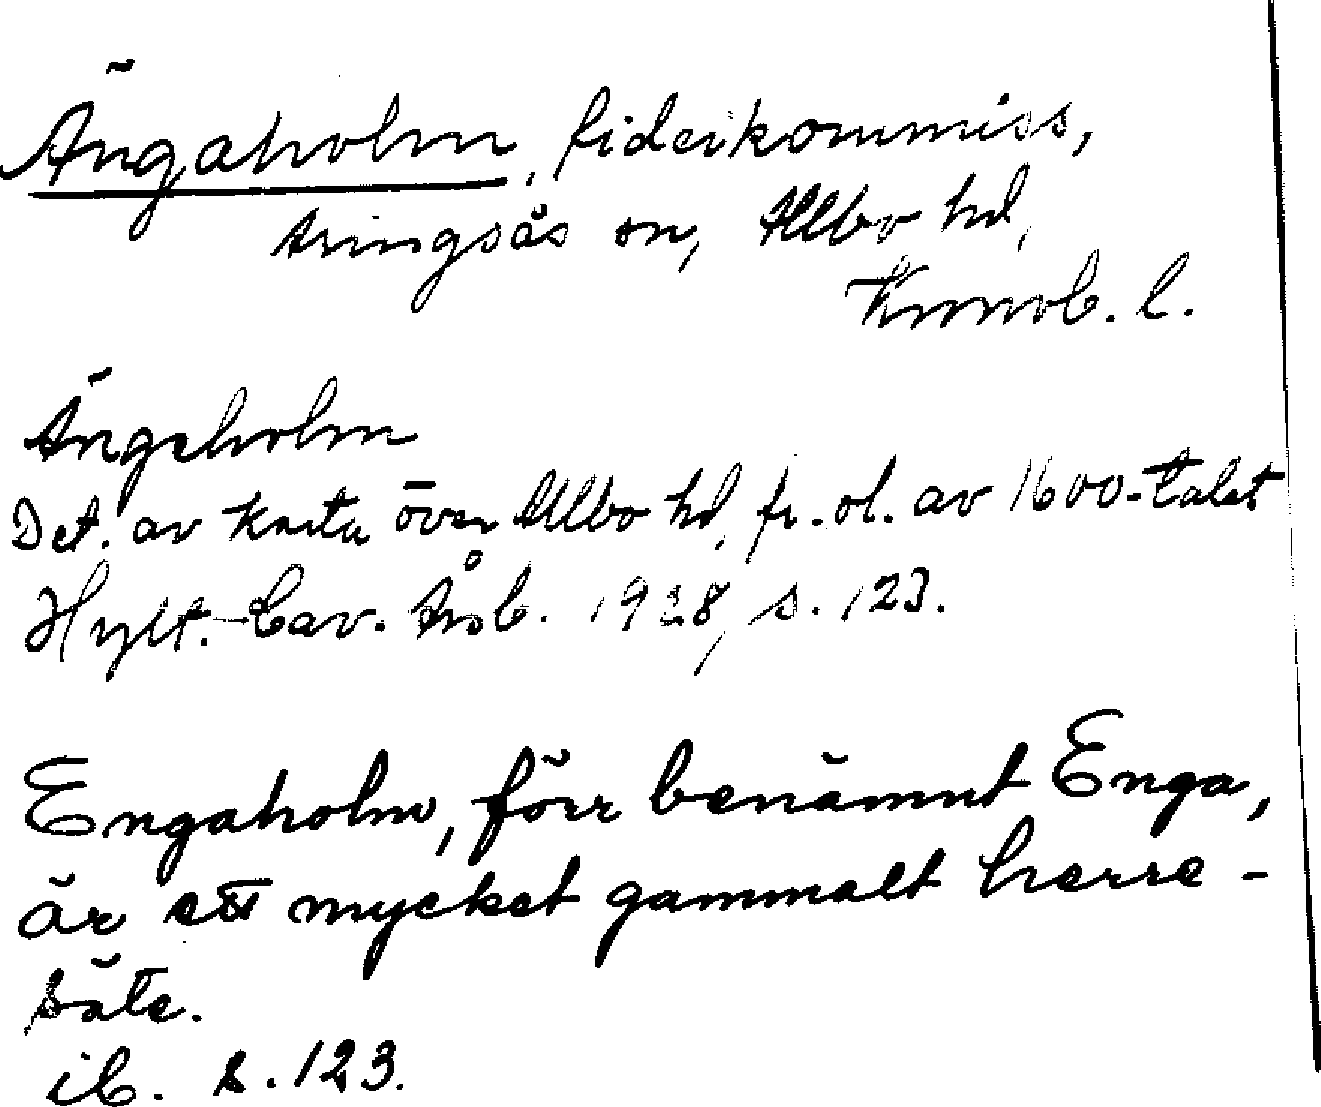 Ängaholm, fideikommiss,
Aringsås sn, Allbo hd,
Kronob. l.
Ängeholm
Det. av karta över Allbo hd, fr. sl. av 1600-talet
Hylt.-Cav. Årsb. 1928, s. 123.
Engaholm, förr benämnt Enga,
är ett mycket gammalt herre-
säte.
ib. s. 123.